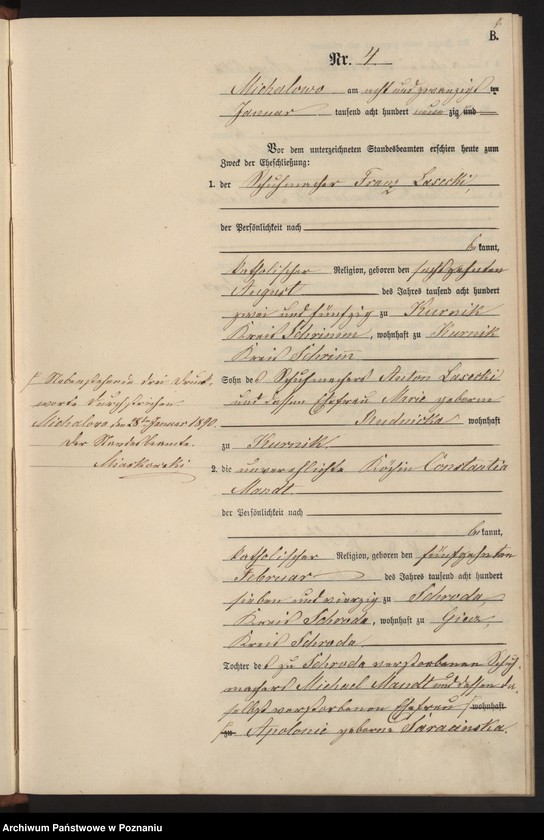 B.
Nr. 4
Michalowo am acht und zwanzigsten
Januar tausend acht hundert neun zig und
Vor dem unterzeichneten Standesbeamten erschien heute zum
Zweck der Eheschließung:
1. der Schuhmacher Franz Lasecki,
der Persönlichkeit nach
be kannt,
katholischer Religion, geboren den sechszehnten
August des Jahres tausend acht hundert
zwei und fünfzig zu Kurnik
Kreis Schrimm, wohnhaft zu Kurnik
Kreis Schrimm
Sohn des Schuhmachers Anton Lasecki
und dessen Ehefrau Marie geborne
Rudnicka wohnhaft
zu Kurnik.
2. die unverehlichte Köchin Constantia
Mandt
der Persönlichkeit nach
be kannt,
katholischer Religion, geboren den fünfzehnten
Februar des Jahres tausend acht hundert
sieben und vierzig zu Schroda,
Kreis Schroda, wohnhaft zu Giecz,
Kreis Schroda
Tochter des zu Schroda verstorbenen Schuh-
machers Michael Mandt und dessen da-
selbst verstorbenen Ehefrau wohnhaft
zu Apolonie geborne Saracinska.
Nebenstehende drei Druck-
worte durchstrichen.
Michalowo, den 28ten Januar 1890.
Der Standesbeamte.
Miaskowski
Archiwum Państwowe w Poznaniu